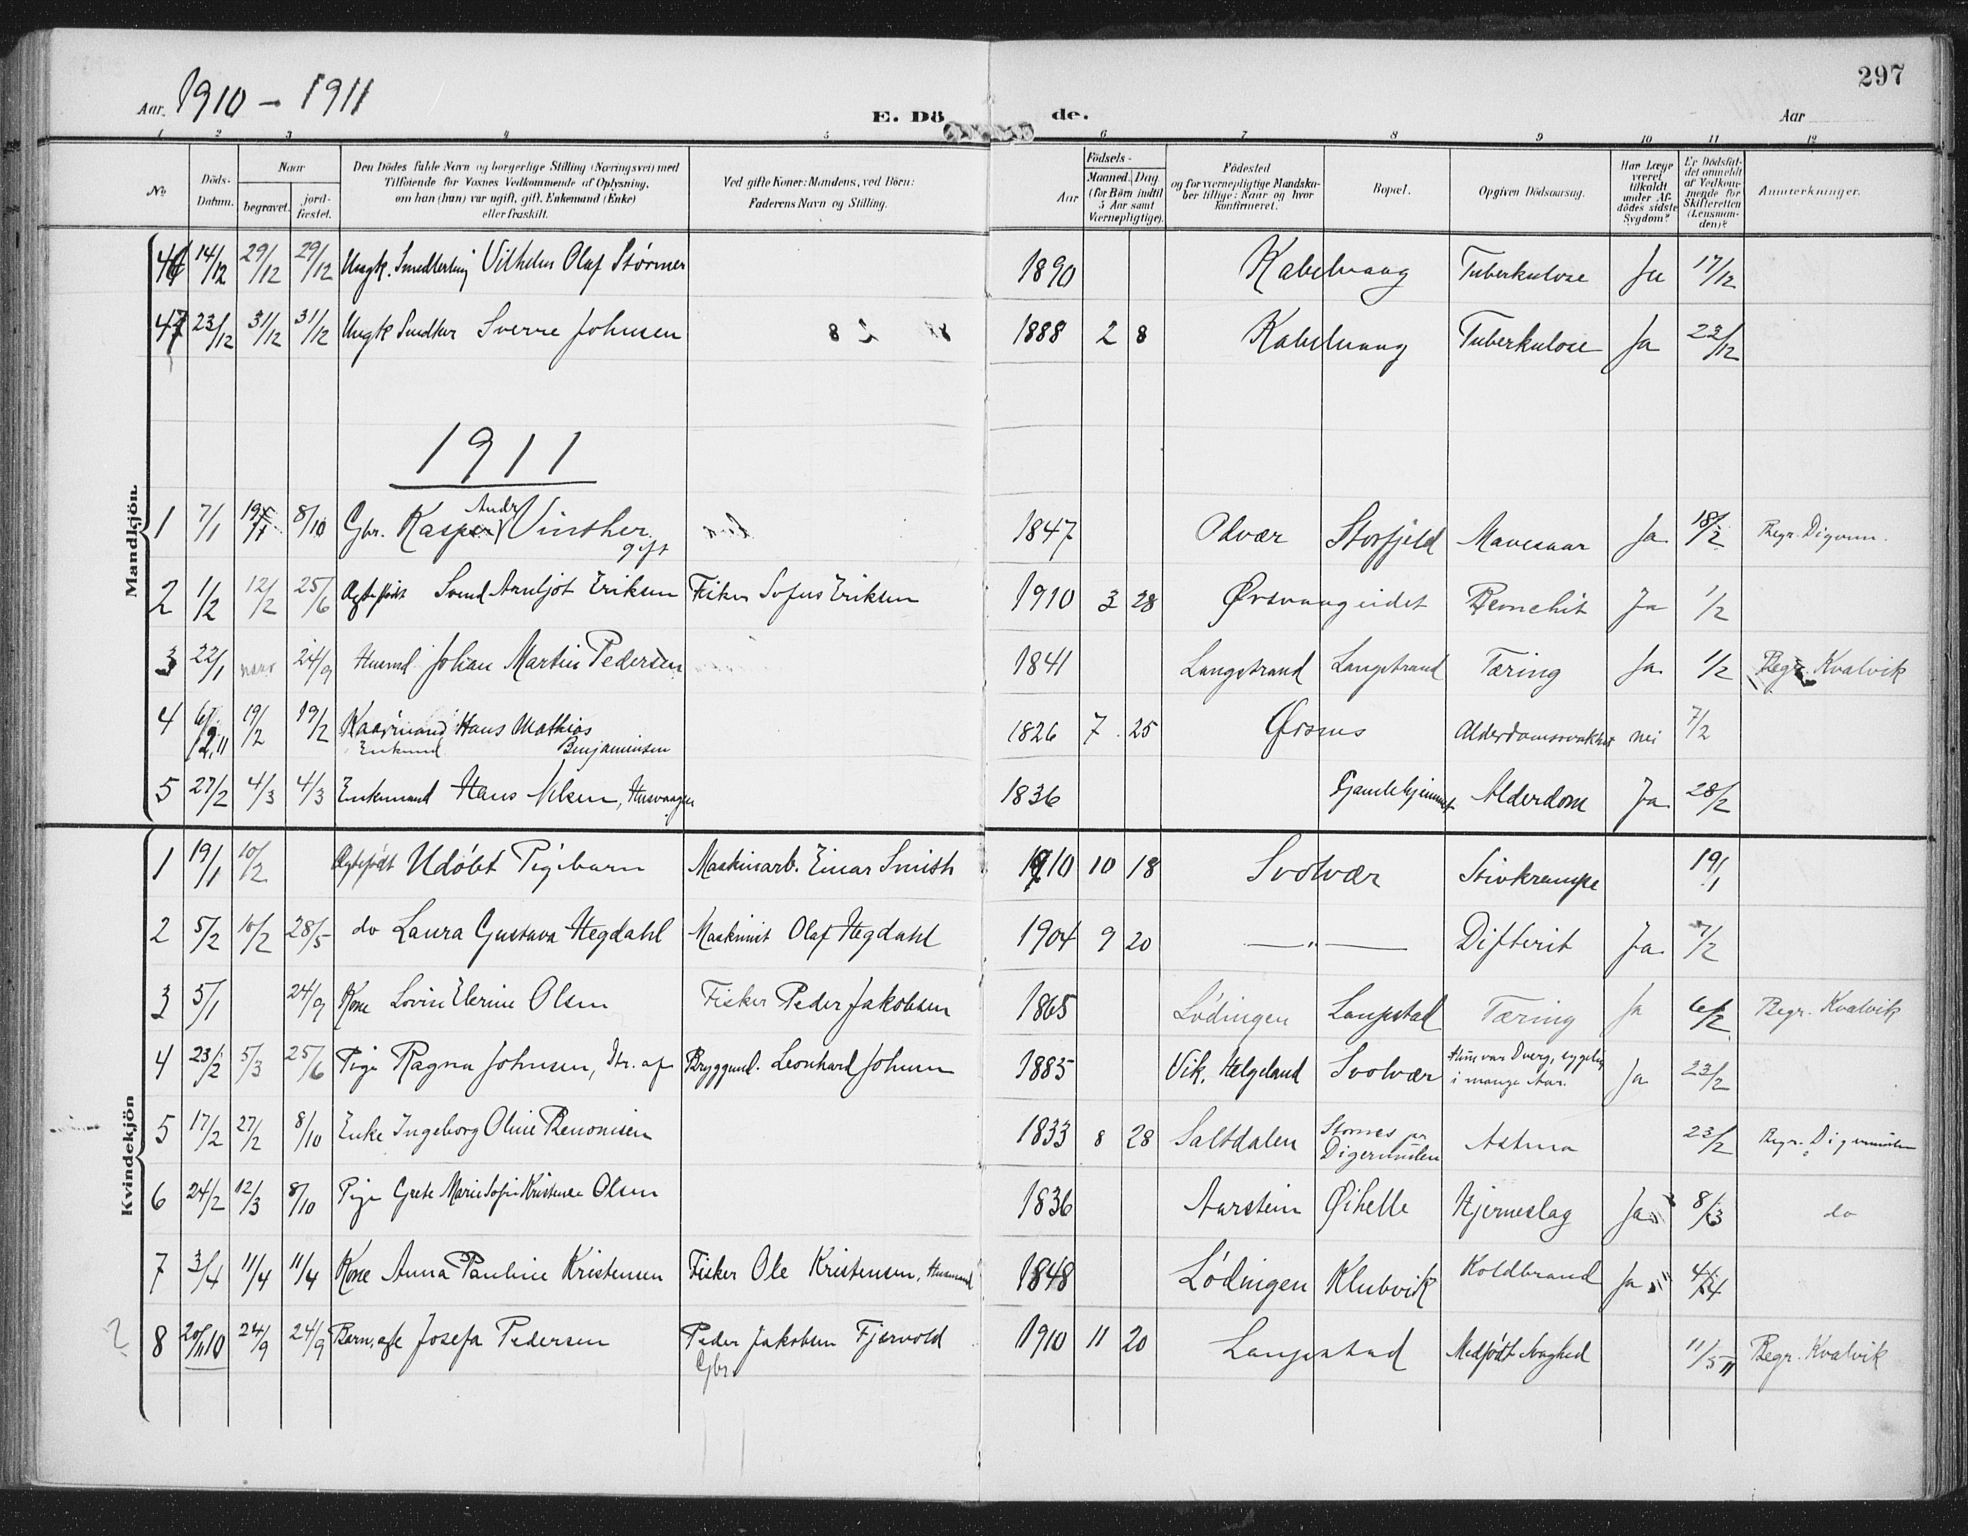 Aar. 1910 - 1911
E. Dö de.
Aar
297
1 2 3 4 5 6 7 8 9 10 11 12
No
Döds-Datum.
Naar begravet. jordfæstet.
Den Dödes fulde Navn og borgerlige Stilling (Næringsvei) med Tilföiende for Voxnes Vedkommende af Oplysning, om han (hun) var ugift, gift, Enkemand (Enke) eller fraskilt.
Ved gifte Koner: Mandens, ved Börn: Faderens Navn og Stilling.
Födsels-
Aar Maaned. Dag (for Börn indtil 5 Aar samt Værnepligtige).
Födested og for værnepligtige Mandskaber tillige: Naar og hvor konfirmeret.
Bopæl.
Opgiven Dödsaarsag.
Har Læge været tilkaldt under Afdödes sidste Sygdom?
Er Dödsfaldet anmeldt af Vedkommende for Skifteretten (Lensmanden)?
Anmerkninger.
Mandkjön.
46 14/12 29/12 29/12 Ungk. Smedlerling Vilhelm Olaf Störmer 1890 Kabelvaag Tuberkulose Ja 17/12
47 23/12 31/12 31/12 Ungk Sverre Johnsen 1888 2 8 Kabelvaag Tuberkulose Ja 23/12
1911
1 7/1 8/10 Gbr. Kasper Andr Vinther gift 1847 Odvær Storfjeld Mavesaar Ja 18/2 Begr. Digerm.
2 1/2 12/2 25/6 Ægtefödt Svend Arnljot Eriksen Fisker Sofus Eriksen 1910 3 28 Ørsvaageidet Bronchit Ja 1/2
3 22/1 24/9 Husmd Johan Martin Pedersen 1841 Langstrand Langstrand Tæring Ja 1/2 Begr. Kvalvik
4 6/2 11 19/2 19/2 Kaarmand Enkemd Hans Mathias Benjaminsen 1826 7 25 Ørsnes Alderdomssvakhet nei 7/2
5 27/2 4/3 4/3 Enkemand Hans Nilsen, Husvaagen 1836 Gamlehjemmet Alderdom Ja 28/2
Kvindekjön
1 19/1 10/2 Ægtefödt Udöbt Pigebarn Maskinarb. Einar Smith 1910 10 18 Svolvær Stivkrampe 19/1
2 5/2 10/2 28/5 do Laura Gustava Hegdahl Maskinist Olaf Hegdahl 1904 9 20 — " — Difterit Ja 7/2
3 5/1 24/9 Kone Lovise Elerine Olsen Fisker Peder Jakobsen 1865 Lödingen Langstad Tæring Ja 6/2 Begr. Kvalvik
4 23/2 5/3 25/6 Pige Ragna Johnsen, Dtr. af Bryggemd. Leonhard Johnsen 1885 Vik, Helgeland Svolvær Hun var Dverg, sygelig i mange Aar. Ja 23/2
5 17/2 27/2 8/10 Enke Ingeborg Oline Benonisen 1833 8 28 Saltdalen Stornes pr Digermulen Astma 23/2 Begr. Digermulen
6 24/2 12/3 8/10 Pige Grete Marie Sofie Kristense Olsen 1836 Aarstein Øihelle Hjerneslag Ja 8/3 do
7 3/4 11/4 11/4 Kone Anna Pauline Kristensen Fisker Ole Kristensen, Husmand 1848 Lödingen Klubvik Koldbrand Ja 4/4
? 8 20/11 10 24/9 24/9 Barn, ægte Josefa Pedersen Peder Jakobsen Fjervold Gbr 1910 11 20 Langstad Medfödt svaghed 11/5 11 Begr. Kvalvik